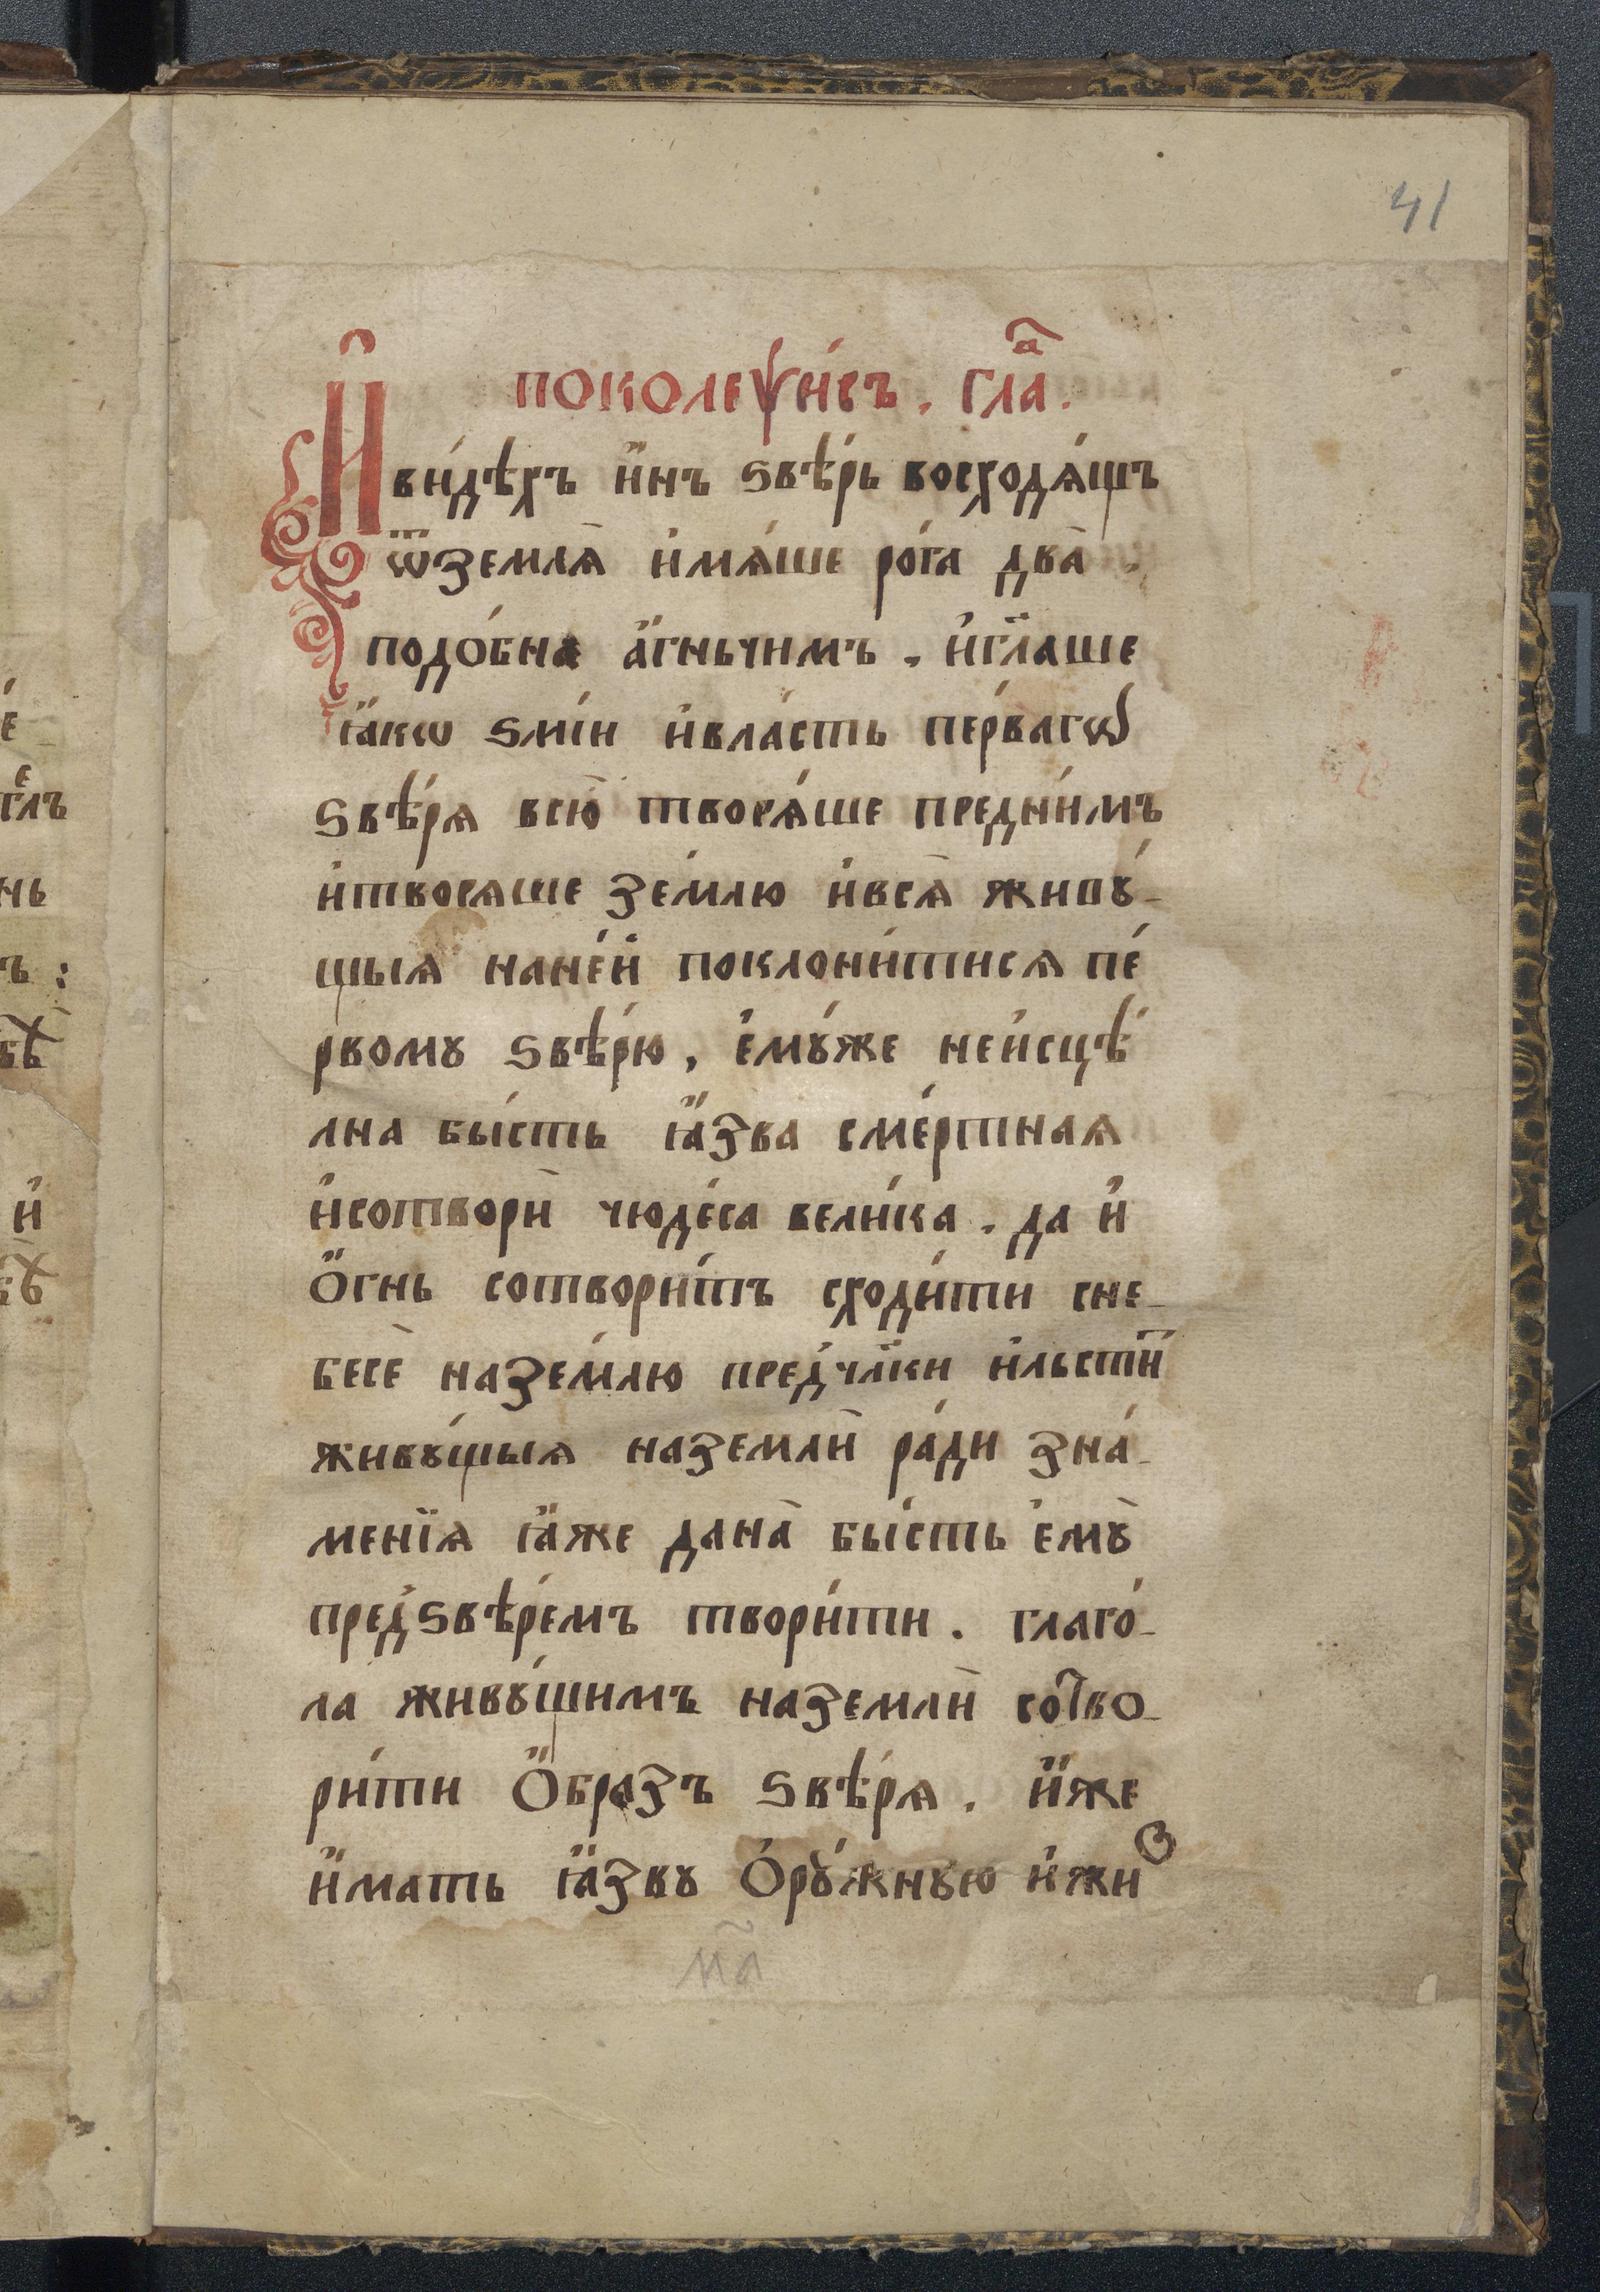 41
поколеѱнивъ . гла҃ а
И҆ ви́дѣхъ и҆́нъ ѕвѣ́рь восходѧ́щъ
ѿземлѧ̀ и҆мѧ́ше ро́га два̀ .
подо́бна а҆́гньчимъ . и҆гл҃аше
ꙗ҆́кѡ ѕмі́и и҆вла́сть пе́рвагѡ
ѕвѣ́рѧ всю̀ творѧ́ше предни́мъ
и҆творѧше зе́млю и҆всѧ̀ живꙋ́-
щыѧ нане́й поклони́тисѧ пе́
рвомꙋ ѕвѣ́рю , є҆мꙋ́же неи҆сцѣ́
лна бы́сть ꙗ҆́зва сме́ртнаѧ
и҆сотворѝ чюде́са вели́ка . да и҆
ѻ҆́гнь сотвори́тъ сходи́ти сне-
бесѐ назе́млю пред̾чл҃ки и҆льсти́тъ
живꙋ́щыѧ наземлѝ ра́ди зна́-
менїѧ ꙗ҆́же дана̀ бы́сть є҆мꙋ̀
пред̾ѕвѣ́ремъ твори́ти . глаго́-
ла живꙋ́щимъ наземлѝ сотво-
ри́ти ѻ҆́бразъ ѕвѣ́рѧ . и҆́же
и҆́мать ꙗ҆́звꙋ ѻ҆рꙋ́жнꙋю и҆жив
м҃а